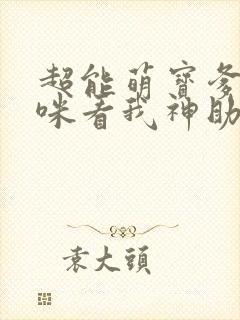 超能萌寶爹
咪看我神助
袁大頭